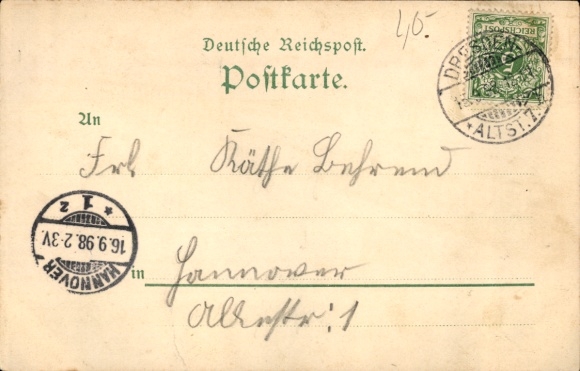 4,5.
REICHSPOST
5
DRESDEN
* ALTST. 7.
Deutsche Reichspost.
Postkarte.
An
Frl Käthe Behrend
* 1 z
16.9.98. 2-3V.
HANNOVER
in Hannover
1